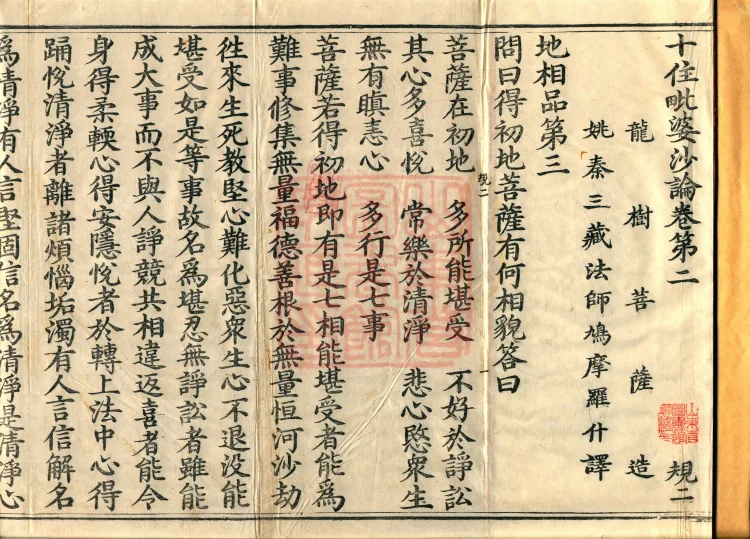 十住毗婆沙論卷第二 規二
龍樹菩薩造
姚秦三藏法師鳩摩羅什譯
地相品第三
問曰得初地菩薩有何相貌答曰
規二
菩薩在初地 多所能堪受 不好於諍訟
其心多喜悅 常樂於清淨 悲心愍眾生
無有瞋恚心 多行是七事
菩薩若得初地即有是七相能堪受者能為
難事修集無量福德善根於無量恒河沙劫
往來生死教堅心難化惡衆生心不退没能
堪受如是等事故名為堪忍無諍訟者雖能
成大事而不與人諍競共相違返喜者能令
身得柔輭心得安隱悅者於轉上法中心得
踊悅清淨者離諸煩惱垢濁有人言信解名
為清淨有人言堅固信名為清淨是清淨心